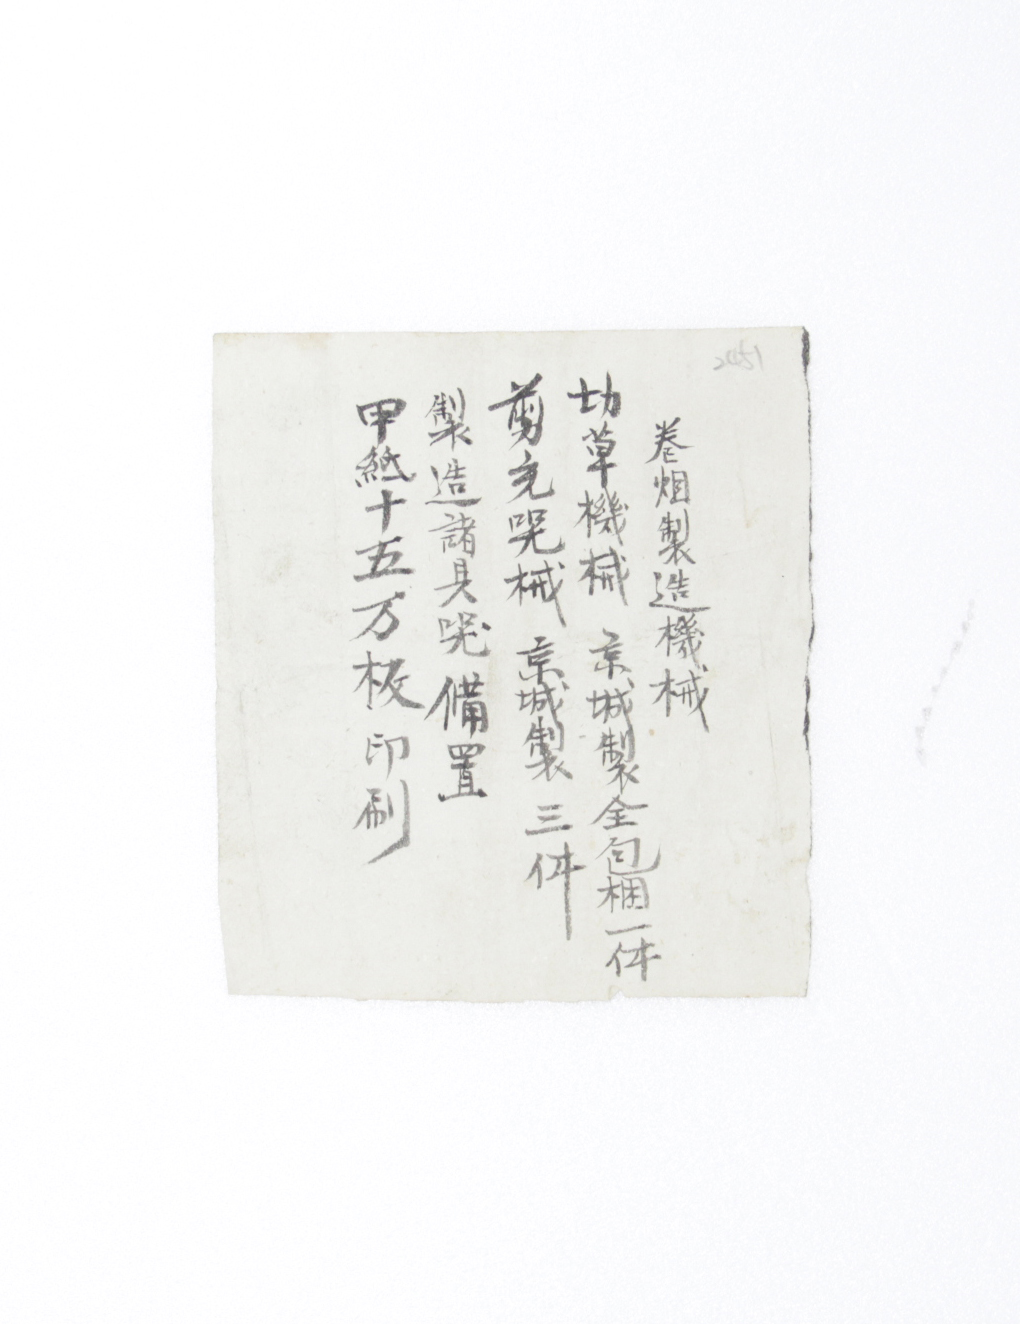 卷烟製造機械
切草機械 京城製全包梱一件
剪充噐械 京城製 三件
製造諸具噐 備置
甲紙十五万板 印刷
2451